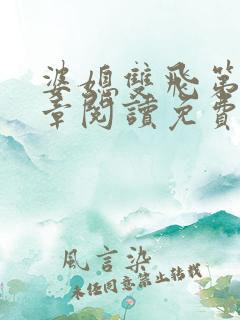 婆媳雙飛第
章閱讀免費
風言染
未經同意禁止轉載